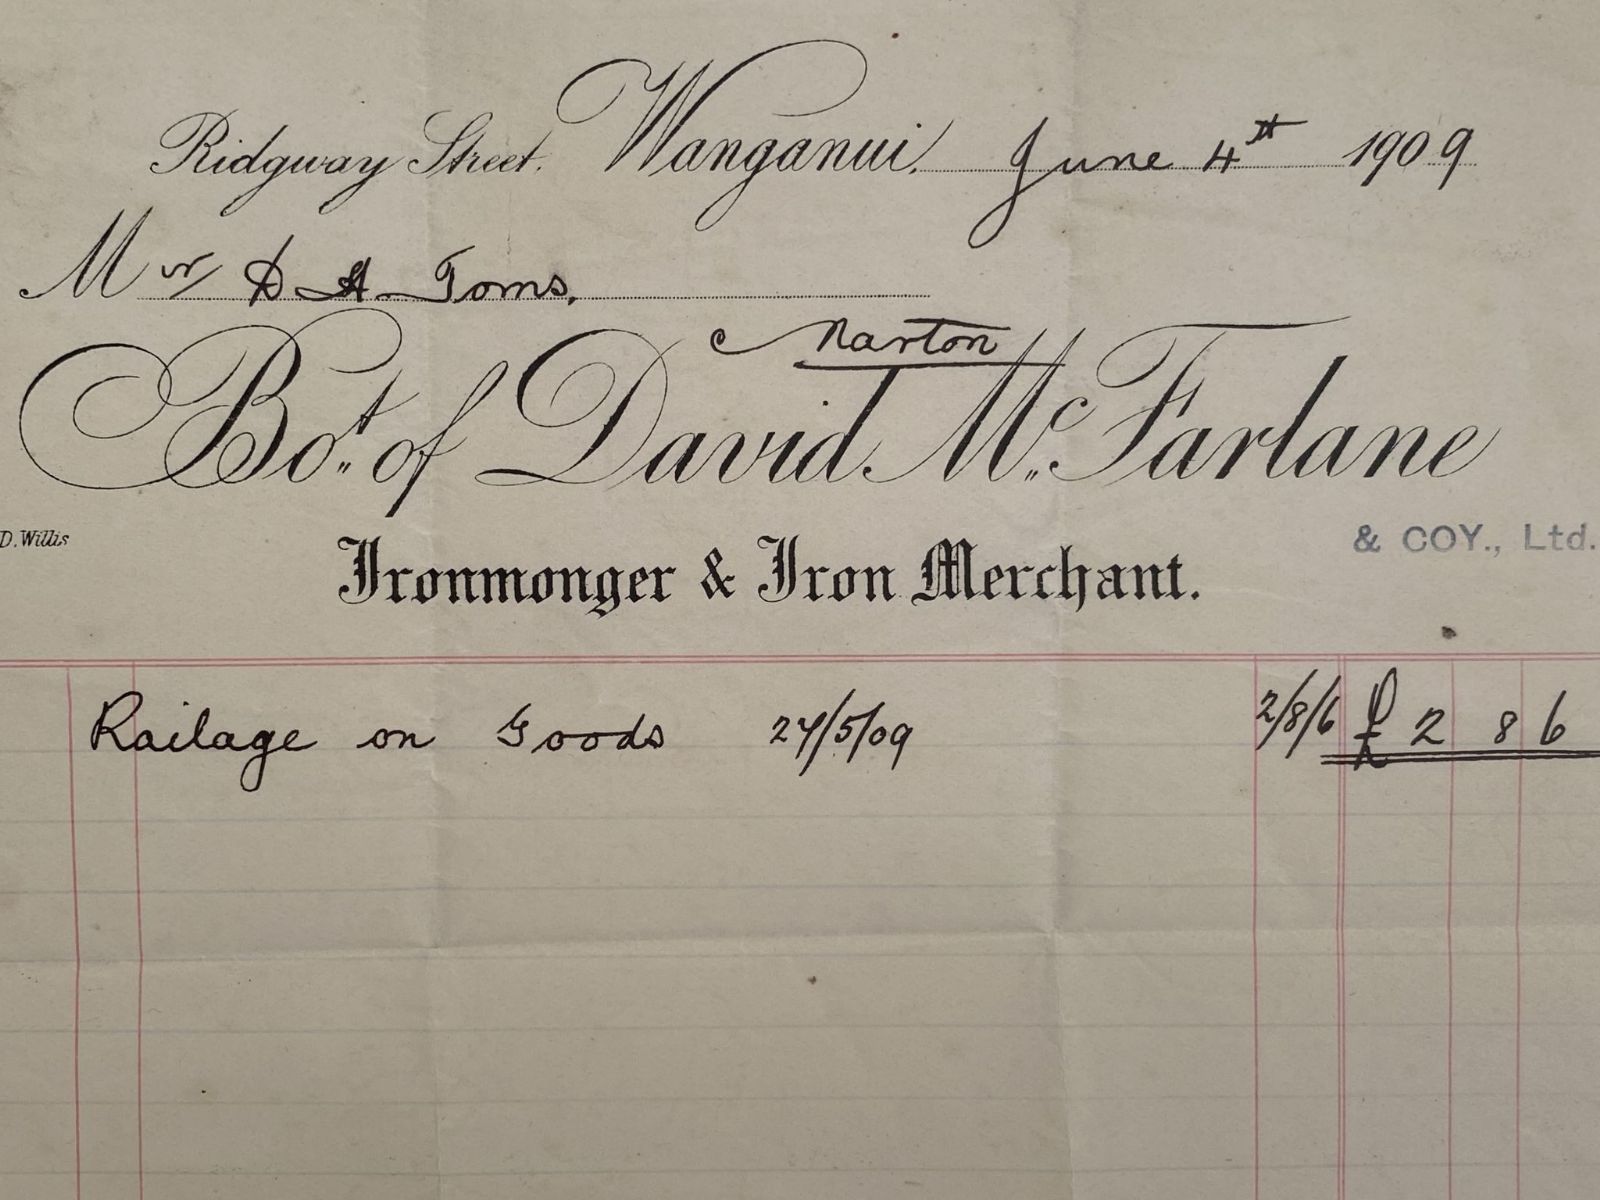 Ridgway Street. Wanganui, June 4th 1909
Mr D A Toms,
Marton
Bot. of David Mc Farlane
D. Willis
& COY., Ltd.
Ironmonger & Iron Merchant.
Railage on Goods 24/5/09 2/8/6 £ 2 8 6